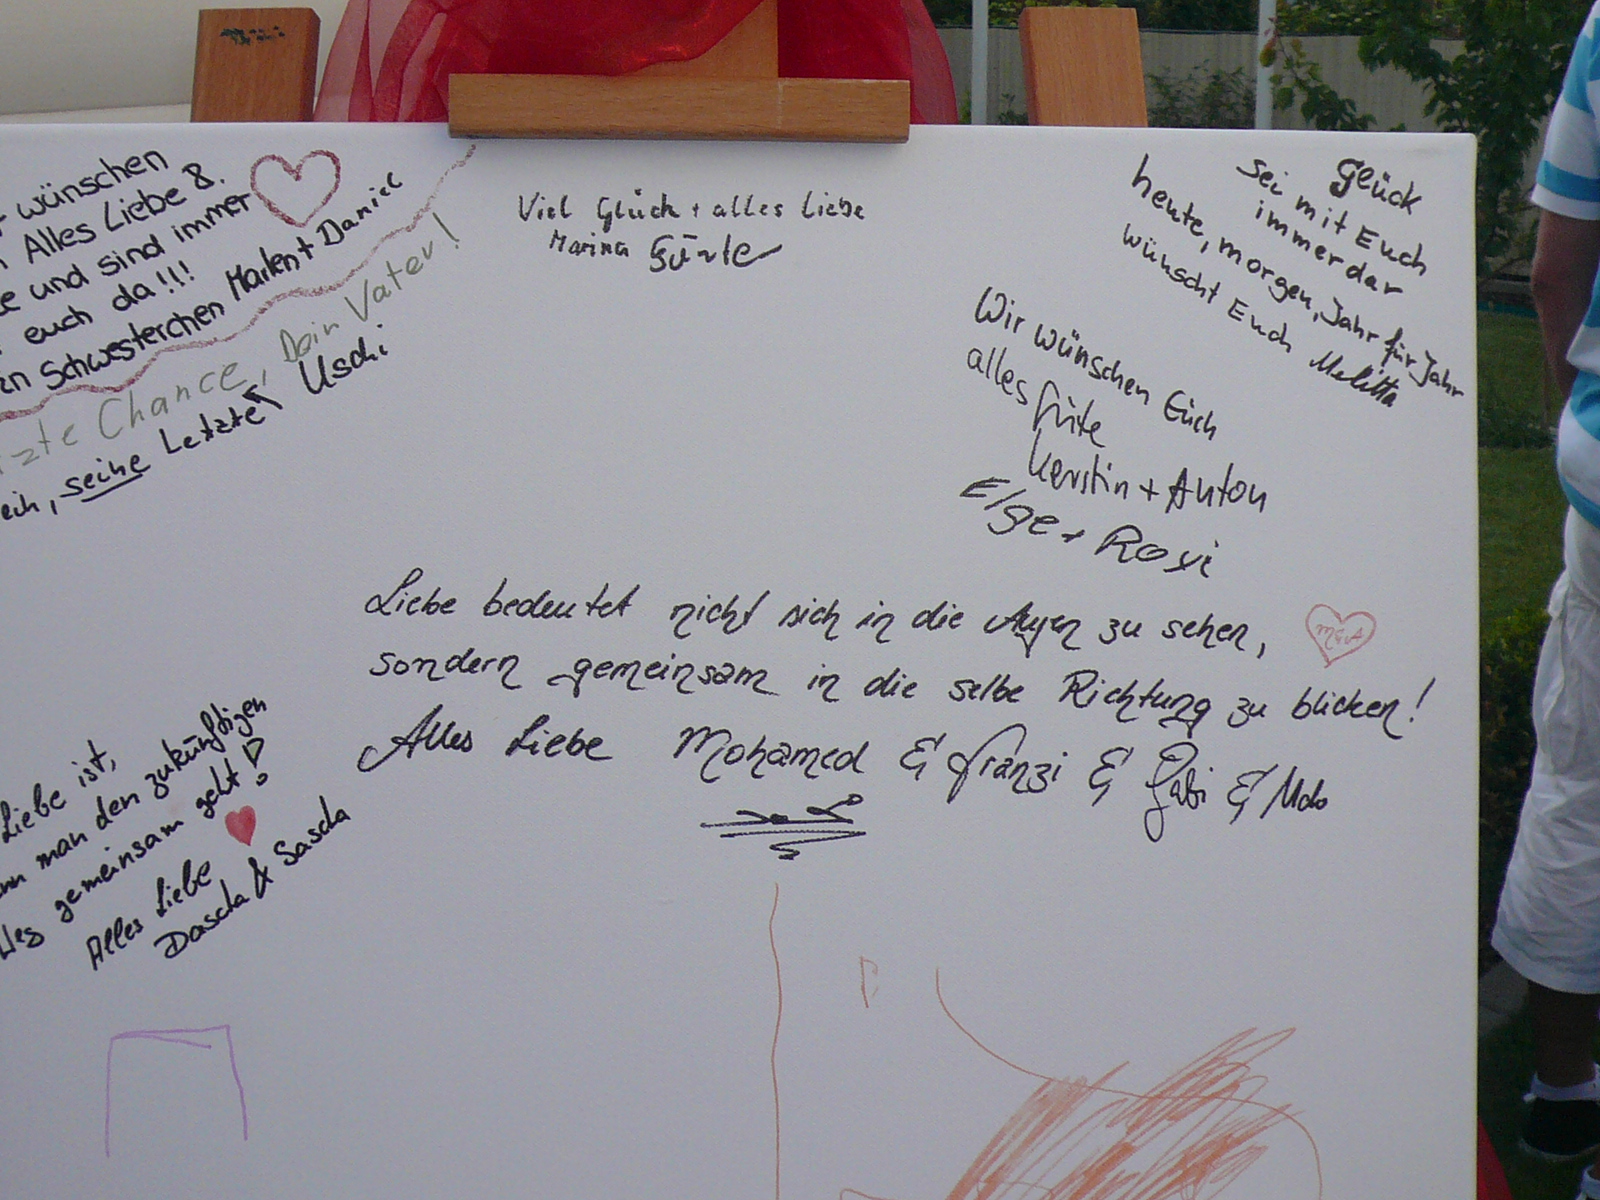 wünschen
Alles Liebe &
und sind immer
euch da!!!
Schwesterchen Marlen + Daniel
Chance, Dein Vater!
seine Letzte Uschi
Viel Glück + alles Liebe
Marina
Glück
sei mit Euch
immerdar
heute, morgen, Jahr für Jahr
wünscht Euch Melitta
Wir wünschen Euch
alles Gute
Kerstin + Anton
Elge + Roxi
Liebe bedeutet nicht sich in die Augen zu sehen,
sondern gemeinsam in die selbe Richtung zu blicken!
Alles Liebe Mohamed & Franzi & Gabi & Udo
Liebe ist,
man den zukünftigen
Weg gemeinsam geht!
Alles Liebe
Dascha & Sascha